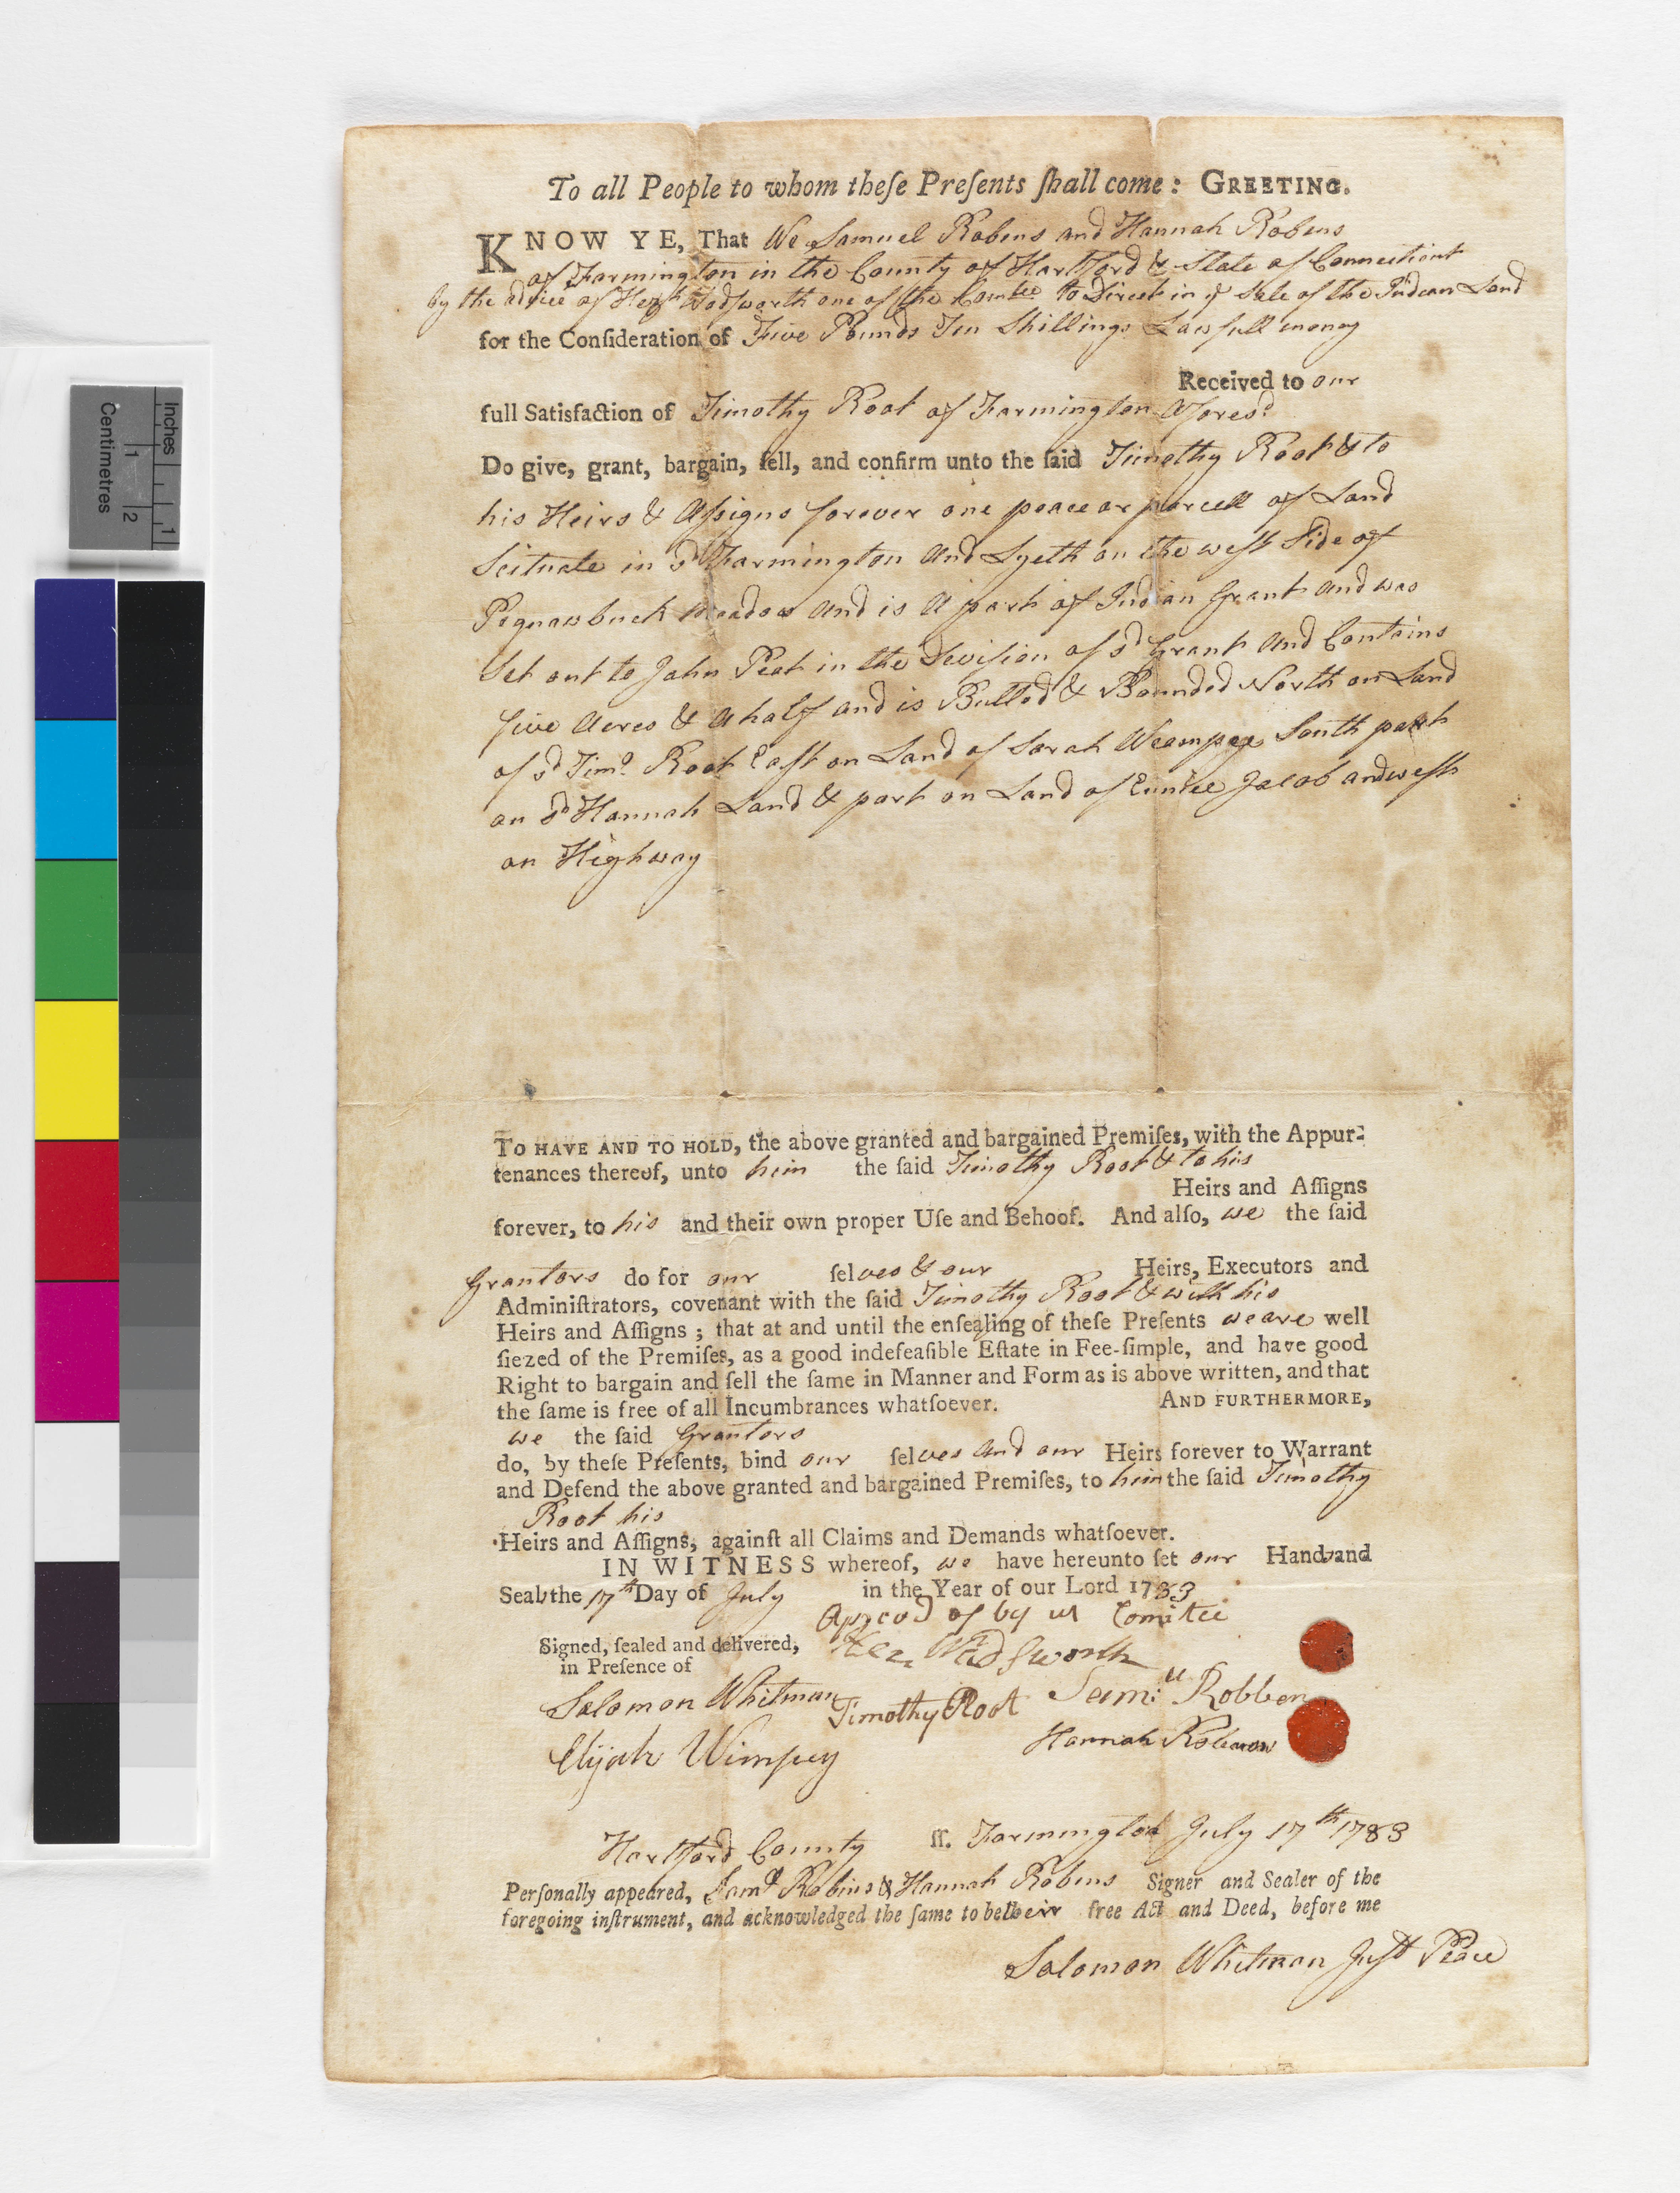 Inches 1
Centimetres 1 2
To all People to whom theſe Preſents ſhall come: GREETING.
KNOW YE, That We Samuel Robins and Hannah Robens
of Farmington in the County of Hartford & State of Connecticut
by the advice of Hezh Wadsworth one of the Comtee to Direct in ye Sale of the Indian Land
for the Conſideration of Five Pounds Ten Shillings Lawfull money
Received to our
full Satisfaction of Timothy Root of Farmington Aforesd
Do give, grant, bargain, ſell, and confirm unto the ſaid Timothy Root & to
his Heirs & Aſsigns forever one peace or parcell of Land
Scituate in sd Farmington and Lyeth on the west Side of
Pequawbuck Meadow and is A part of Indian Grant and was
Set out to John Peet in the Deviſion of sd Grant And Contains
five Acres & A half and is Butted & Bounded North on Land
of sd Timo Root East on Land of Sarah Weampey South part
on sd Hannah Land & part on Land of Eunice Jacob and west
on Highway
TO HAVE AND TO HOLD, the above granted and bargained Premiſes, with the Appur-
tenances thereof, unto him the ſaid Timothy Root & to his
Heirs and Aſſigns
forever, to his and their own proper Uſe and Behoof. And alſo, we the ſaid
Grantors do for our ſelves & our Heirs, Executors and
Adminiſtrators, covenant with the ſaid Timothy Root & with his
Heirs and Aſſigns; that at and until the enſealing of theſe Preſents we are well
ſiezed of the Premiſes, as a good indefeaſible Eſtate in Fee-ſimple, and have good
Right to bargain and ſell the ſame in Manner and Form as is above written, and that
the ſame is free of all Incumbrances whatſoever. AND FURTHERMORE,
we the ſaid Grantors
do, by theſe Preſents, bind our ſelves and our Heirs forever to Warrant
and Defend the above granted and bargained Premiſes, to him the ſaid Timothy
Root his
Heirs and Aſſigns, againſt all Claims and Demands whatſoever.
IN WITNESS whereof, we have hereunto ſet our Hands and
Seals the 17th Day of July in the Year of our Lord 1783
Aproved of by us Comitee
Signed, ſealed and delivered, Hez. Wadsworth
in Preſence of
Solomon Whitman Timothy Root Samll Robben
Elijah Wimpey Hannah
Hartford County ſſ. Farmington July 17th 1783
Perſonally appeared, Samll Robins & Hannah Robens Signer and Sealer of the
foregoing inſtrument, and acknowledged the ſame to be their free Act and Deed, before me
Solomon Whitman Just Peace